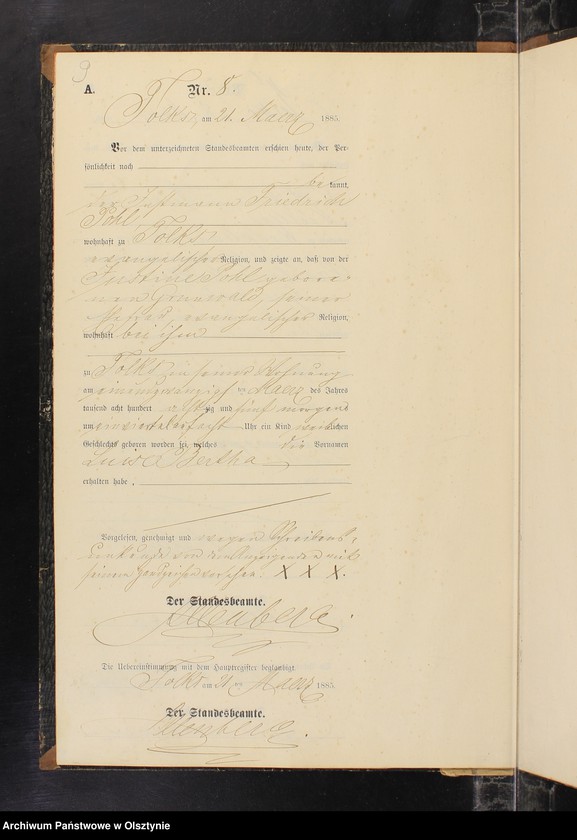 9
A.
Nr. 8.
Tolks, am 21. Maerz 1885.
Vor dem unterzeichneten Standesbeamten erschien heute, der Per-
sönlichkeit nach
bekannt,
der Friedrich
Pohl
wohnhaft zu Tolks,
evangelischer Religion, und zeigte an, daß von der
Justine Pohl gebore-
nen Grunwald, seiner
Ehefrau, evangelischer Religion,
wohnhaft bei ihm
zu Tolks in seiner Wohnung
am einundzwanzigsten Maerz des Jahres
tausend acht hundert achtzig und fünf morgens
um Uhr ein Kind weiblichen
Geschlechts geboren worden sei, welches die Vornamen
Bertha
erhalten habe,
Vorgelesen, genehmigt und wegen Schreibens-
unkunde von dem Anzeigenden mit
seinem Handzeichen versehen. X X X.
Der Standesbeamte.
Die Uebereinstimmung mit dem Hauptregister beglaubigt
Tolks am 21 ten Maerz 1885.
Der Standesbeamte.
Archiwum Państwowe w Olsztynie